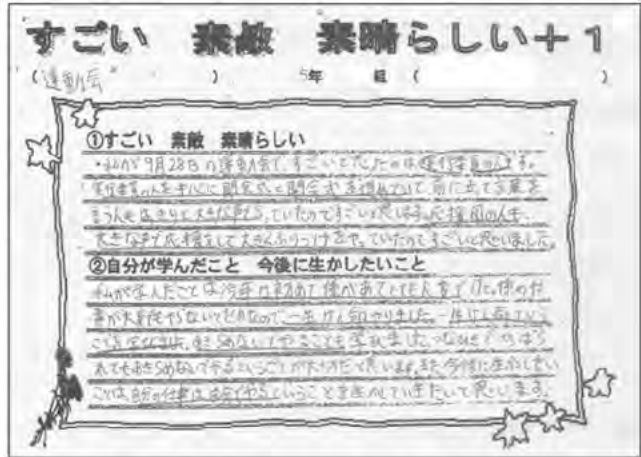 すごい 素敵 素晴らしい+1
(運動会 ) 5年 組 ( )
①すごい 素敵 素晴らしい
・私が9月28日の運動会で、すごいと思ったのは実行委員の人です。
実行委員の人を中心に開会式と閉会式を進めていて、前に立って言葉を
言う人もはきはきと大きな声で言っていたのですごいと思います。応援団の人も
大きな声で応援をして大きくふりつけをやっていたのですごいと思いました。
②自分が学んだこと 今後に生かしたいこと
私が学んだことは今年は初めて係があって
事が大変 一生けん命やりました。一生けん命やるという
ことを学びました。あきらめないでやることも学びました。つなひきで
れてもあきらめないでやるということが大切だと思います。また、今後に生かしたい
ことは、自分の仕事は自分でやるということを生かしていきたいと思います。